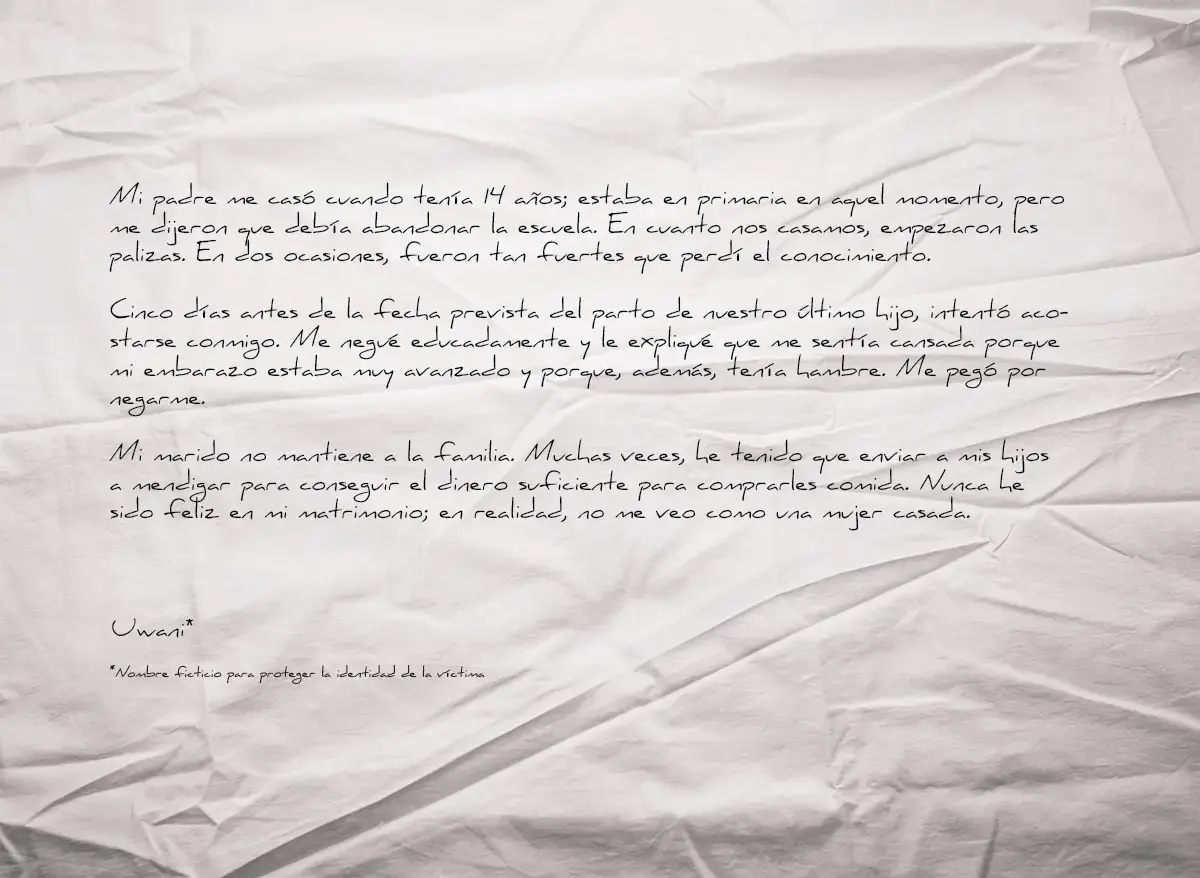 Mi padre me casó cuando tenía 14 años; estaba en primaria en aquel momento, pero
me dijeron que debía abandonar la escuela. En cuanto nos casamos, empezaron las
palizas. En dos ocasiones, fueron tan fuertes que perdí el conocimiento.
Cinco días antes de la fecha prevista del parto de nuestro último hijo, intentó aco-
starse conmigo. Me negué educadamente y le expliqué que me sentía cansada porque
mi embarazo estaba muy avanzado y porque, además, tenía hambre. Me pegó por
negarme.
Mi marido no mantiene a la familia. Muchas veces, he tenido que enviar a mis hijos
a mendigar para conseguir el dinero suficiente para comprarles comida. Nunca he
sido feliz en mi matrimonio; en realidad, no me veo como una mujer casada.
Uwani*
*Nombre ficticio para proteger la identidad de la víctima